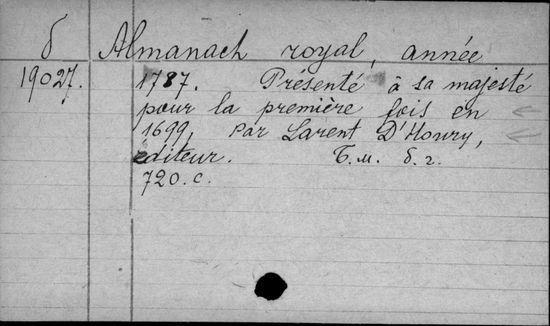 б Almanach royal, année
19027. 1787. Présenté à sa majesté
pour la première fois en
1699, par Larent D'Houry,
éditeur. Б. м. б. г.
720. с.